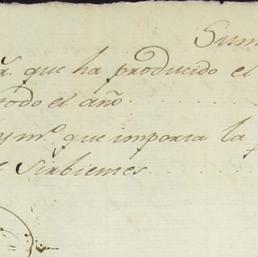 Sum
que ha producido el
todo el año
y m.º que importa la
Sirbientes